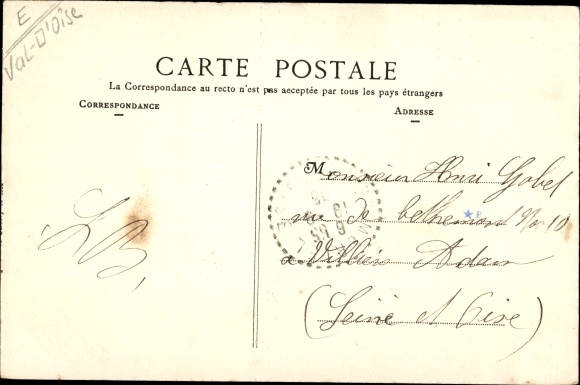 E
Val-D'Oise
CARTE POSTALE
La Correspondance au recto n'est pas aeceptée par tous les pays étrangers
CORRESPONDANCE
ADRESSE
Monsieur Henri Gobel
rue de bethemont No 10
a Villiers Adam
(Seine et Oise)
LB